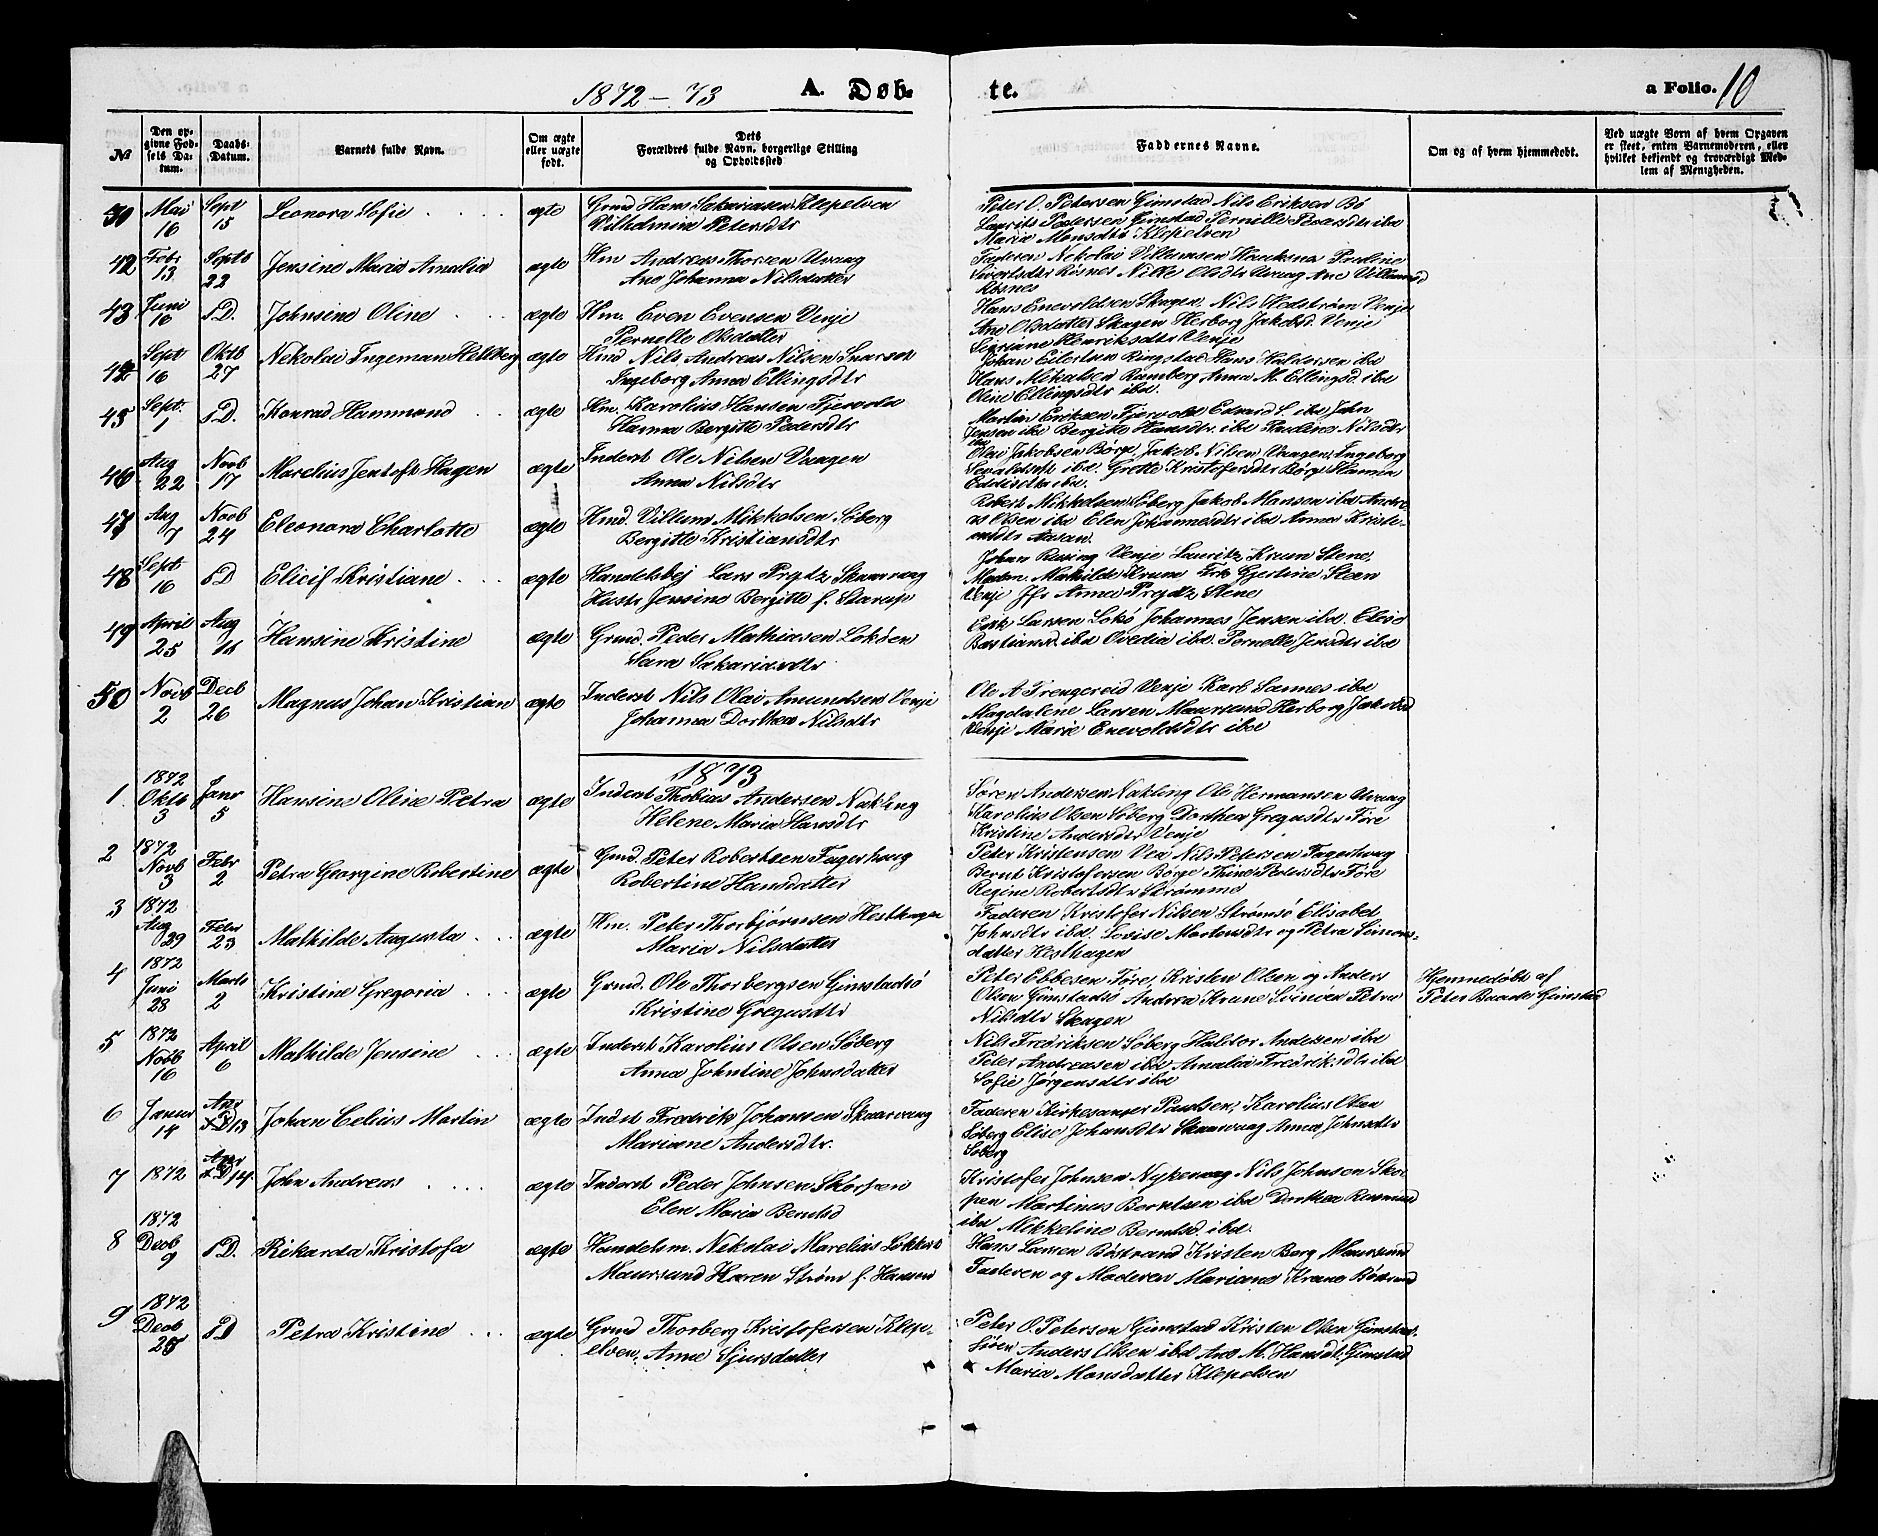 1872-73 A. Døb- te. a Folio. 10
No
Den opgivne Fødsels Datum. Daabs-Datum. Barnets fulde Navn. Om ægte eller uægte født. Dets Forældres fulde Navn, borgerlige Stilling og Opholdssted
Faddernes Navne. Om og af hvem hjemmedøbt. Ved uægte Børn af hvem Opgaven er skeet, enten Barnemoderen, eller hvilket bekjendt og troværdigt Medlem af Menigheden.
Mai 16 Sept 15 Leonora Sofie ægte Grmd Hans Sakariasen Klepelven
Vilhelmine Petersdtr
Peter O. Petersen Gimstad Nils Eriksen Bø
Laurits Pedersen Gimstad Pernille Pedersdtr ibd
Maria Monsdtr Klepelven
42 Febr 13 Septb 22 Jensine Maria Amalia ægte Hm Andreas Thorsen Uvaag
Ane Johanna Nilsdatter
Faderen Nekolai Villumsen
Risnes Nille Olsdtr Uvaag Ane Villumsd
Risnes
43 Juni 16 s.D. Johnsine Oline ægte Hm. Even Evensen Venje
Pernelle Olsdatter
Hans Enevoldsen Skagen, Nils Hedstrøm Venje
Ane Olsdatter Skagen Herborg Jakobsd. Venje
Henriksdtr Venje
Sept 16 Oktb 27 Nekolai Ingeman Hellberg ægte Hmd Nils Andreas Nilsen
Ingeborg Anna Ellingsdtr
Johan Eilertsen Ringstad Hans Haldorsen ibd
Hans Mikalsen Ramberg Anna M. Ellingsd. ibd
Oline Ellingsdtr ibd.
45 Sept. 1 s.D. Konrad Hammond ægte Hm. Karolius Hansen Fjervold
Hanna Bergitte Pedersdtr
Martin Eriksen Fjervold Edvard L. ibd John
Jensen ibd Bergitte Hansdtr. ibd Pauline Nilsdtr
ibd
46 Aug 22 Novb 17 Marelius Jentoft Hagen ægte Inderst Ole Nilsen Vaagen
Anna Nilsdtr
Olai Jakobsen Børge, Jakob Nilsen Vaagen, Ingeborg
ibd. Grette Kristofersdtr Børge Hanna
ibd.
47 Aug 7 Novb 24 Eleonora Charlotte ægte Hmd. Villum Mikkelsen Søberg
Bergitte Kristiansdtr
Robert Mikkelsen Søberg Jakob Hansen ibd Andre-
as Olsen ibd Elen Johannesdtr ibd Anna Kristi-
ansdtr Aasan.
48 Sept 16 s.D Elicif Kristiane ægte Handelsbej Lars Prytz Skaarvaag
Hustr Jensine Bergitte f. Starup
Johan Rusing Venje Lauritz Krum Stene,
Madm. Mathilde Krum Frk Gjertine Steen
Venje Jfr Anna Prydz Stene
49 April 25 Aug Hansine Kristine ægte Grmd. Peder Mathiasen Lokøen
Sara Sakariasdtr
Erik Larsen Lokø Johannes Jensen ibd. Elise
Bastiansd. ibd Ovedia ibd. Pernelle Jensdtr ibd
50 Novb 2 Decb 26 Magnus Johan Kristian ægte Inderst Nils Olai Amundsen Venje
Johanna Dorthea Nilsdtr
Ole A Trengereid Venje Karl Sannes ibd
Magdalene Larsen Maursund Herborg Jakobsd
Venje Marie Enevoldsdtr ibd
1873
1 1872 Oktb 3 Janr 5 Hansine Oline Petra ægte Inderst Thobias Andersen Nakling
Helene Maria Hansdtr
Søren Andersen Nakling Ole Hermansen Uvaag
Karolius Olsen Søberg Dorthea Gregusdtr Føre
Kristine Andersdtr Venje
2 1872 Novb 3 Febr 2 Petra Georgine Robertine ægte Grmd. Peter Robertsen Fagerhaug
Robertine Hansdatter
Peter Kristensen Vea Nils Petersen Fagerhaug
Bernt Kristofersen Børge Thine Petersdtr Føre
Regine Robertsdtr Strømme
3 1872 Aug 29 Febr 23 Mathilde Augusta ægte Hm. Peter Thorbjørnsen Hesthagen
Maria Nilsdatter
Faderen Kristofer Nilsen Strømsø Elisabet
Johnsdtr ibd. Lovise Mortensdtr og Petra Simons-
datter Hesthagen
4 1872 Juni 28 Marts 2 Kristine Gregoria ægte Grmd. Ole Thorbergsen Gimstadsø
Kristine Gregusdtr
Peter Ebbesen Føre, Kristen Olsen og Anders
Olsen Gimstadsø Andrea Krane Svinøen Petra
Nilsdtr Skagen
Hjemmedøbt af
Peter Baade Gimstad
5 1872 Novb 16 April 6 Mathilde Jensine ægte Inderst Karolius Olsen Søberg
Anna Johntine Johnsdatter
Nils Fredriksen Søberg Haldor Andersen ibd
Peter Andreasen ibd Amalia Fredriksdtr ibd
Sofie Jørgensdtr ibd
6 Januar 14 Apr 13 Johan Celius Martin ægte Indst Fredrik Johansen Skaarvaag
Mariane Andersdtr.
Faderen Kirkesanger Paulsen, Karolius Olsen
Søberg Elise Johansdtr Skaarvaag Anna Johnsdtr
Søberg
7 1872 Apr 14 John Andreas ægte Inderst Peder Johnsen Skorpen
Elen Maria Berntsd
Kristofer Johnsen Nykvaag Nils Johnsen Skor-
pen Martinus Berntsen ibd Dorthea Rasmusd
ibd Mikkeline Berntsd. ibd.
8 1872 Decb 9 s.D. Rikarda Kristofa ægte Handelsm. Nekolai Marelius Lokkert
Maursund Karen Strøm f. Hansen
Hans Larsen Bøstrand Kristen Berg Maursund
Faderen og Moderen Mariane Krane Bøstrand
9 1872 Decb 28 s.D Petra Kristine ægte Grmd Thorberg Kristofersen Klepe-
elven, Anne Sjursdatter
Peter O. Petersen Gimstad Kristen Olsen Gimstad-
søen Anders Olsen ibd Ane M. Hansdt. Gimstad
Maria Monsdatter Klepelven